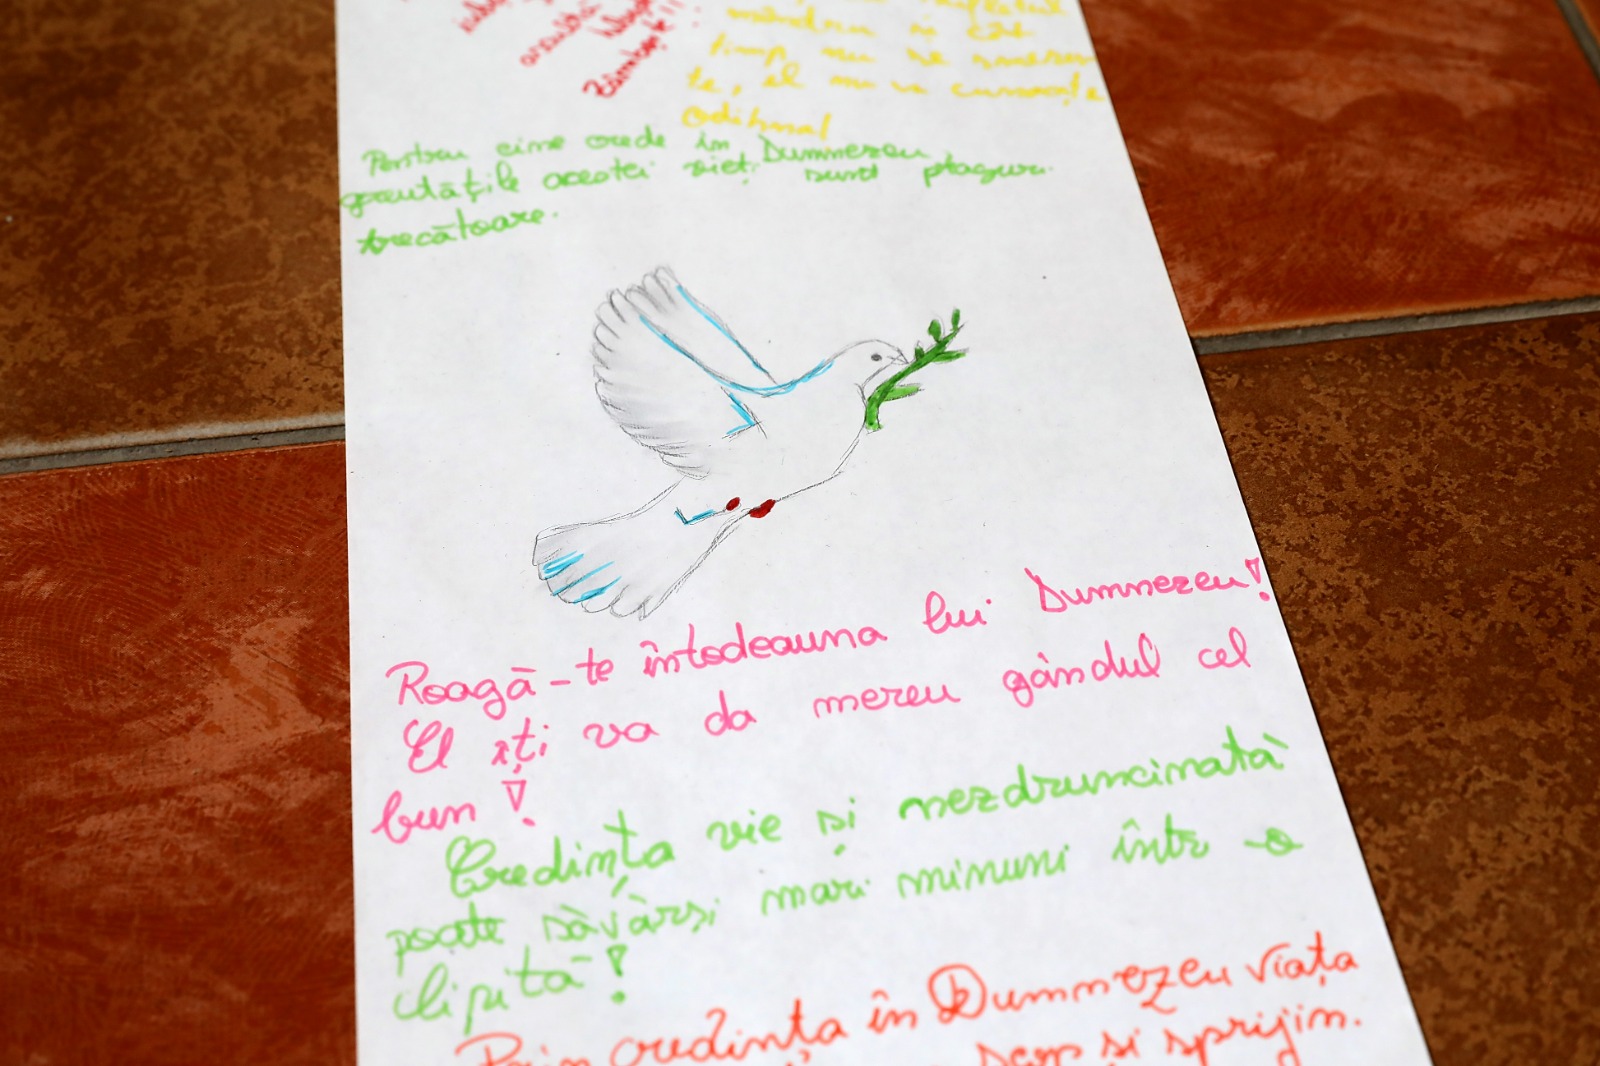 Zâmbește!!
mândru și cât
timp nu se smereș-
te, el nu va cunoaște
odihna!
Pentru cine crede în Dumnezeu
greutățile acestei vieți sunt ploguri
trecătoare.
Roagă-te întodeauna lui Dumnezeu!
El îți va da mereu gândul cel
bun!
Credința vie și nezdruncinată
poate săvârși mari minuni într-o
clipită!
Prin credința în Dumnezeu viața
sens și sprijin.